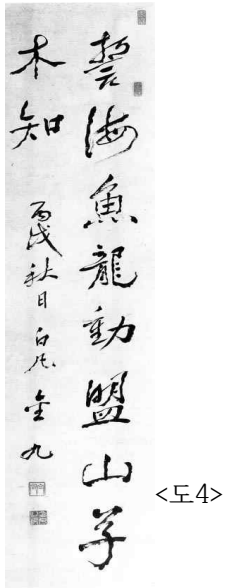 誓海魚龍動盟山草
木知 丙戌秋日 白凡 金九
<도4>